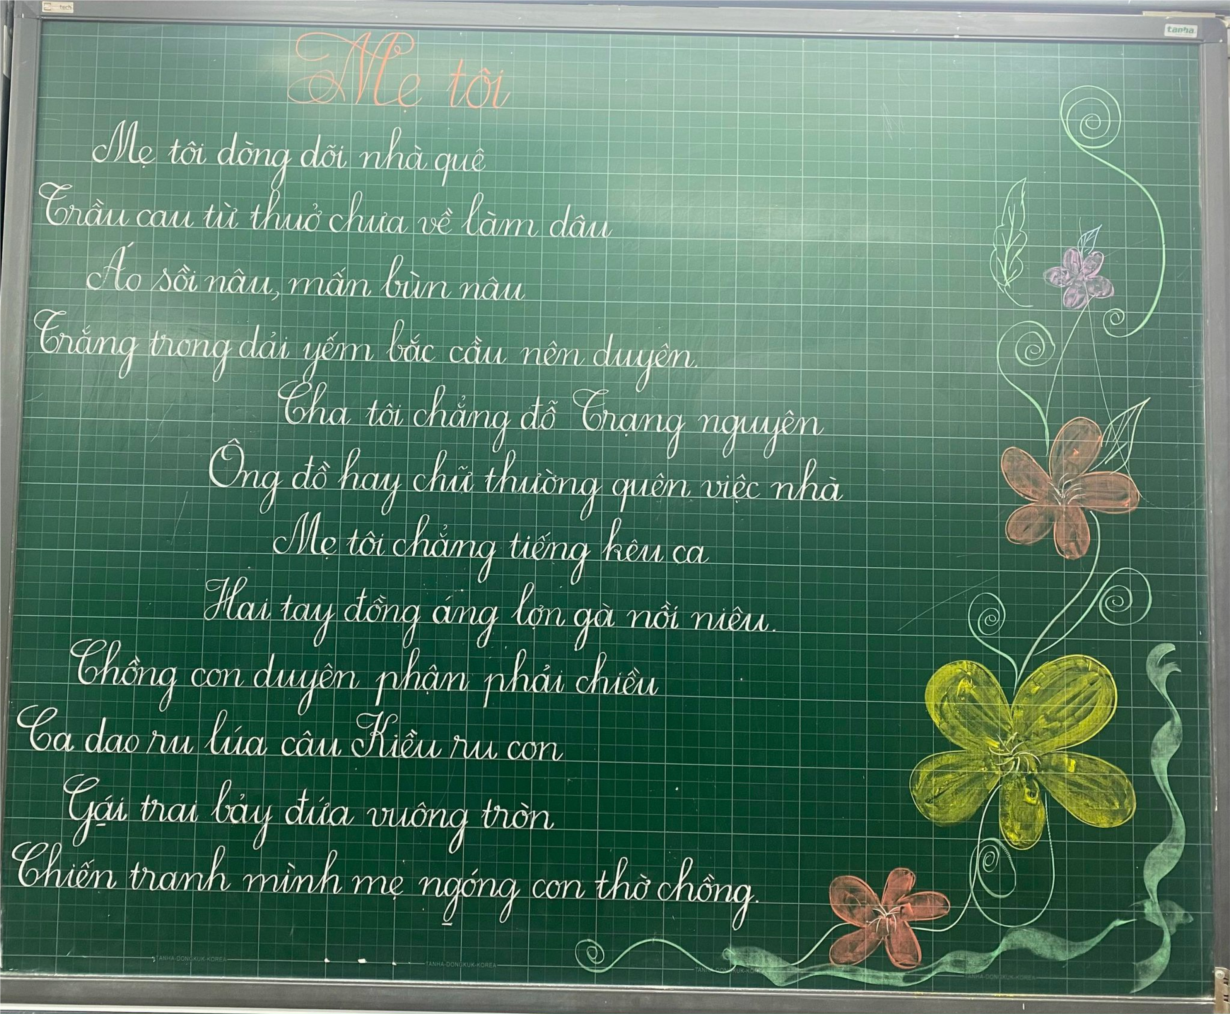 tanha
Mẹ tôi
Mẹ tôi dòng dõi nhà quê
Trầu cau từ thuở chưa về làm dâu
Áo sồi nâu, mấn bùn nâu
Trắng trong dải yếm bắc cầu nên duyên.
Cha tôi chẳng đỗ Trạng nguyên
Ông đồ hay chữ thường quên việc nhà
Mẹ tôi chẳng tiếng kêu ca
Hai tay đồng áng lợn gà nồi niêu.
Chồng con duyên phận phải chiều
Ca dao ru lúa câu Kiều ru con
Gái trai bảy đứa vuông tròn
Chiến tranh mình mẹ ngóng con thờ chồng.